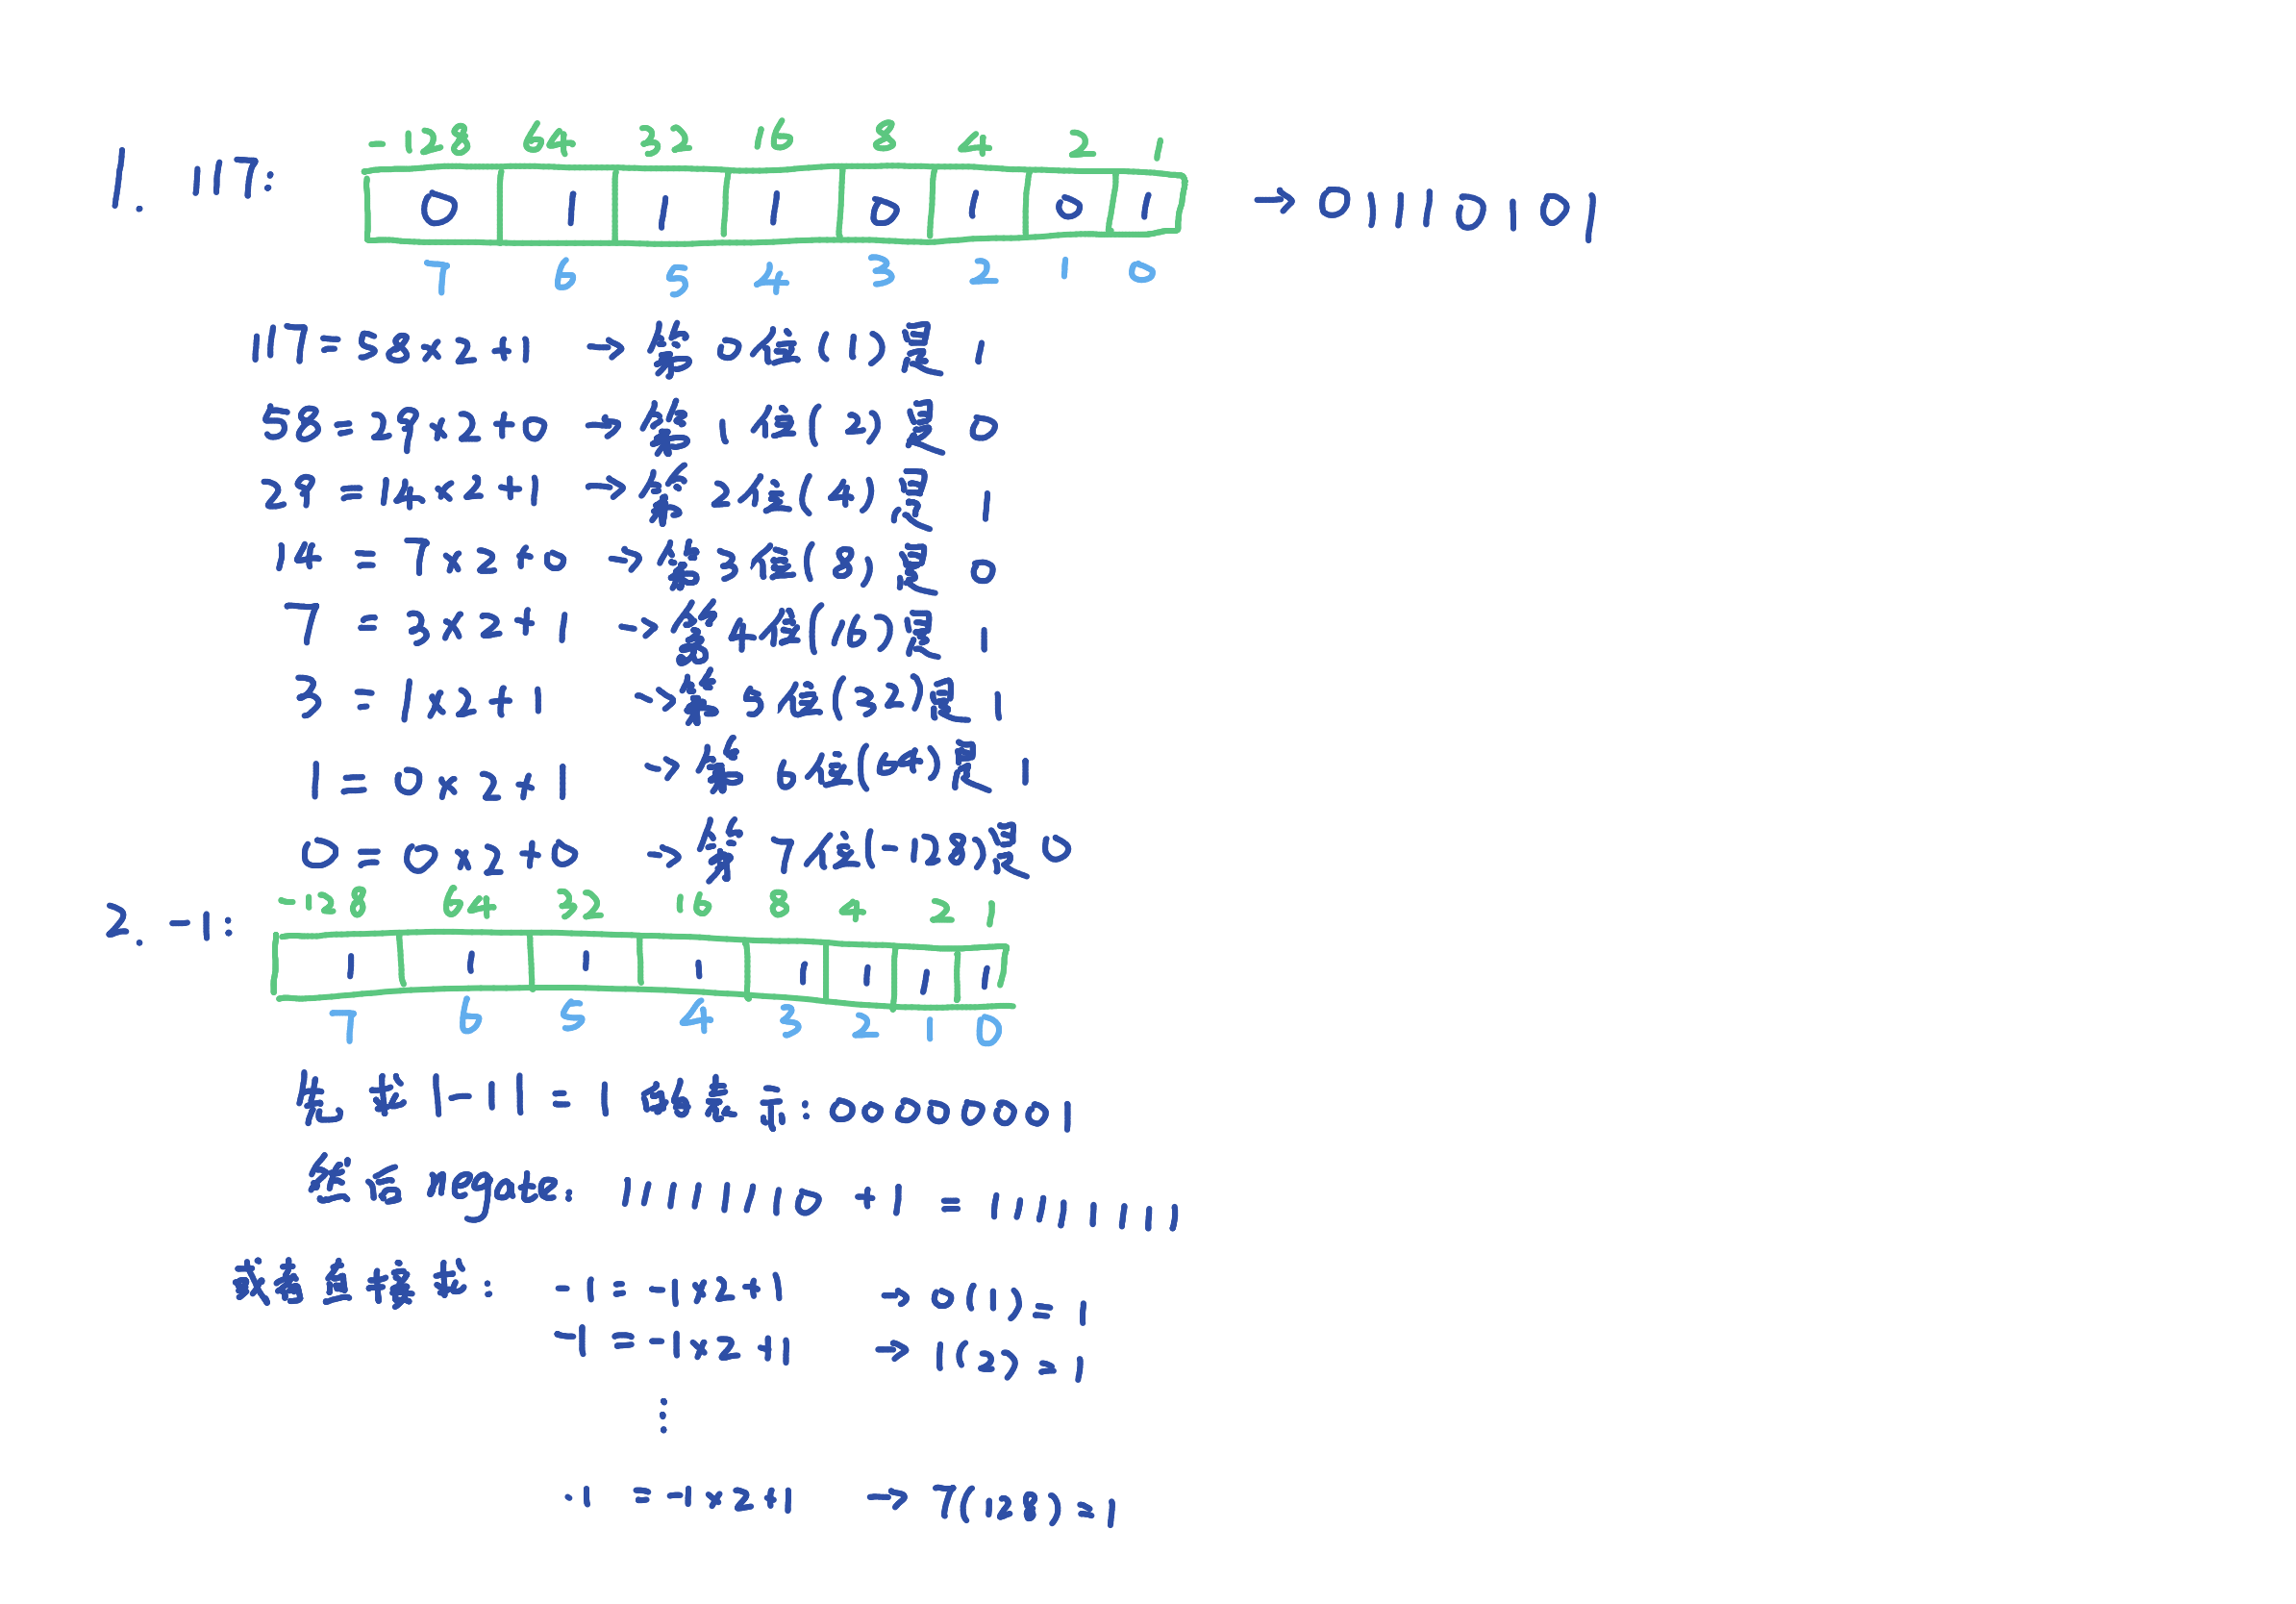 -128 64 32 16 8 4 2 1
1. 117: 0 1 1 1 0 1 0 1 → 01110101
7 6 5 4 3 2 1 0
117=58×2+1 → 第0位(1)是 1
58=29×2+0 → 第1位(2)是 0
29=14×2+1 → 第2位(4)是 1
14=7×2+0 → 第3位(8)是 0
7=3×2+1 → 第4位(16)是 1
3=1×2+1 → 第5位(32)是 1
1=0×2+1 → 第6位(64)是 1
0=0×2+0 → 第7位(-128)是 0
-128 64 32 16 8 4 2 1
2. -1: 1 1 1 1 1 1 1 1
7 6 5 4 3 2 1 0
先求|-1|=1的表示:00000001
然后negate: 11111110+1=11111111
或者直接求: -1=-1×2+1 → 0(1)=1
-1=-1×2+1 → 1(2)=1
⋮
-1=-1×2+1 → 7(128)=1